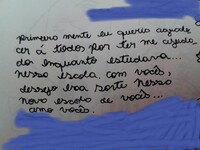 primeiro mente eu queria agrade
cer á todos por ter me ajuda
dos enquanto estudava...
nessa escola. com vocês,
dessejo boa sorte nessa
nova escola de vocês...
amo vocês.